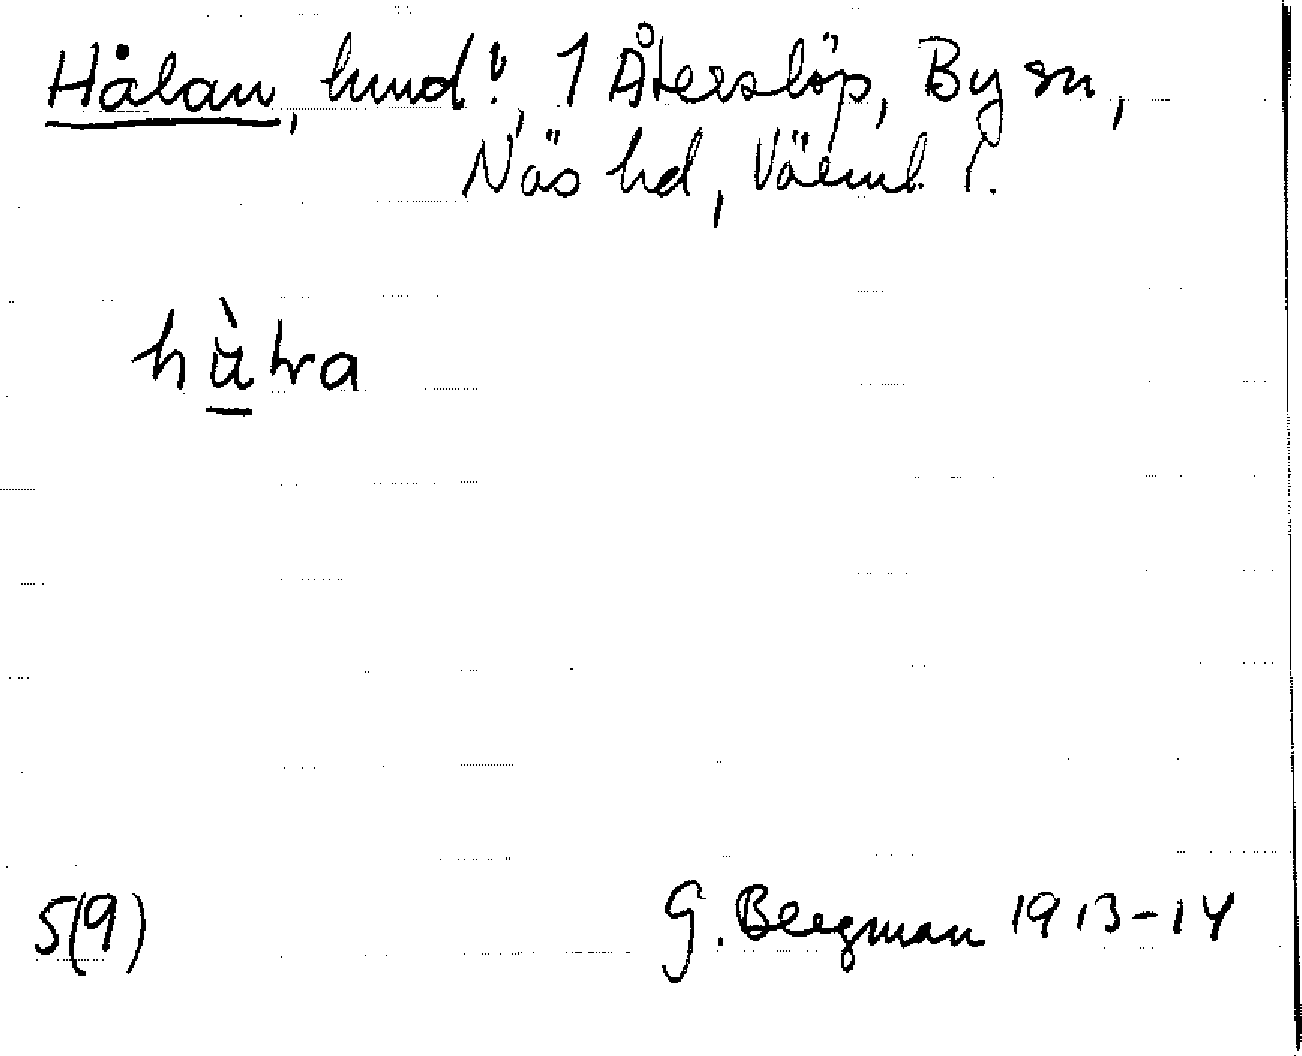 Hålan, hmd!, 1 Återslöp, By sn,
Näs hd, Värml. l.
5(9)
G. Bergman 1913-14